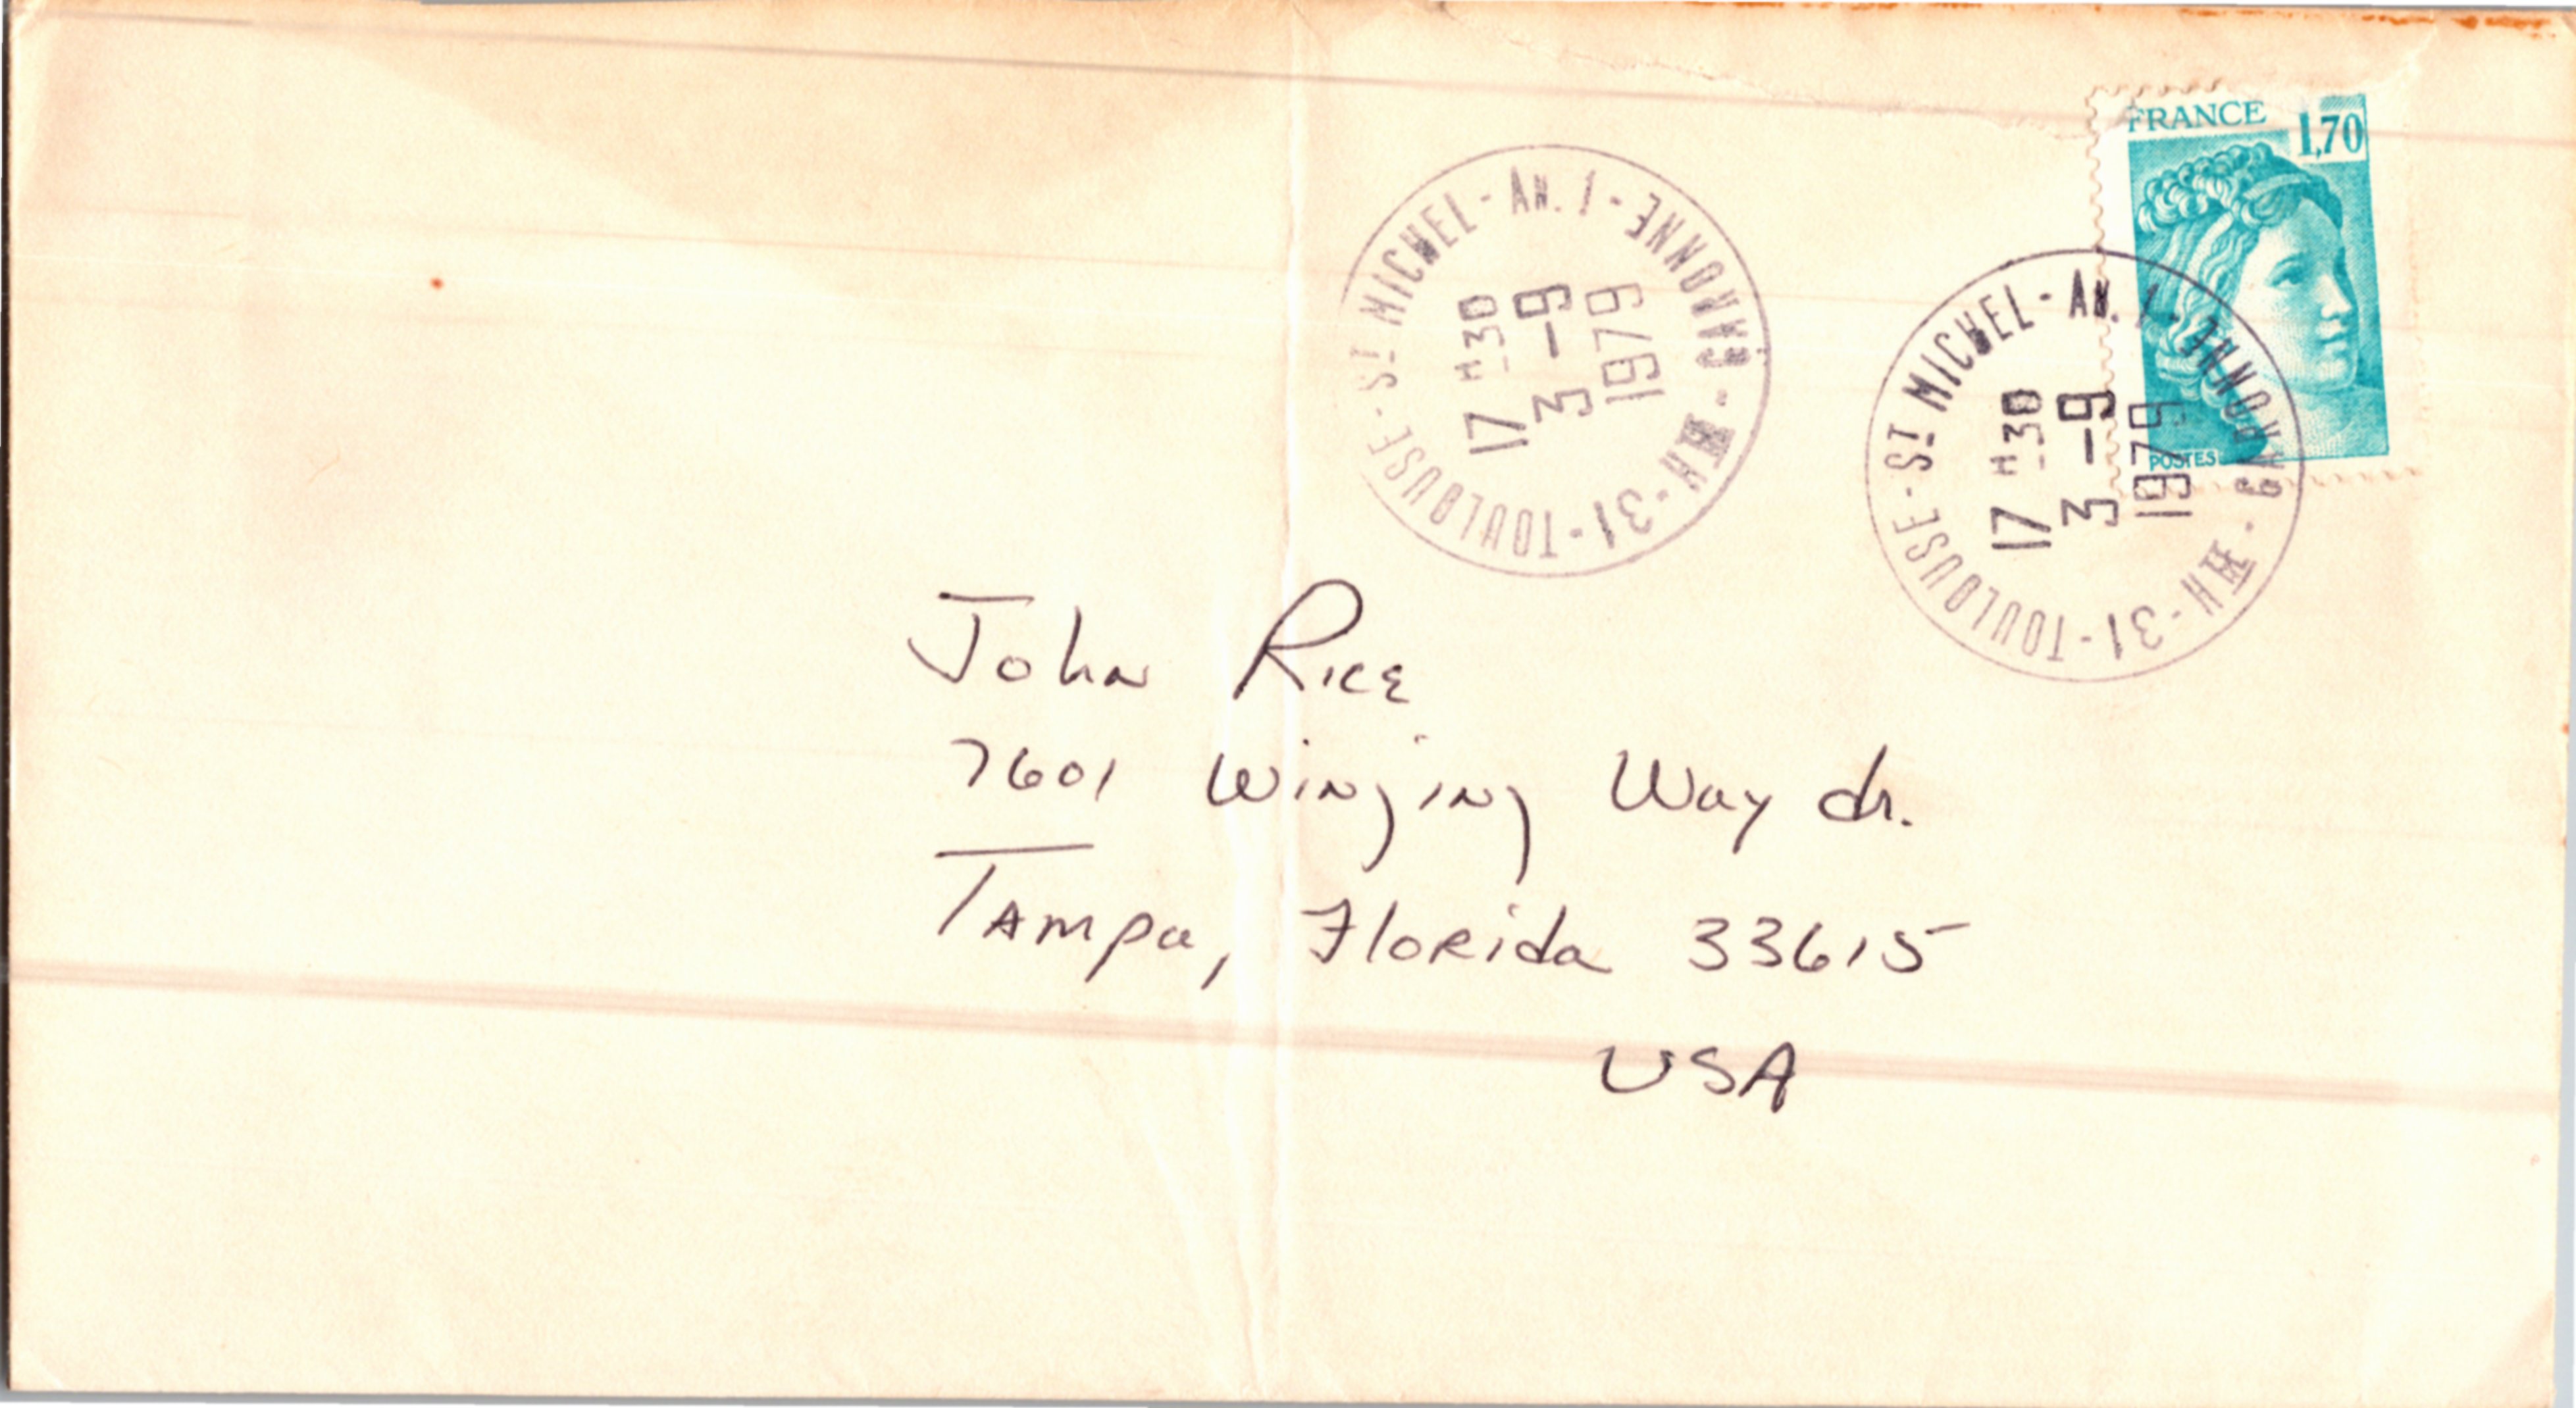 FRANCE
1,70
POSTES
31-TOULOUSE-ST MICHEL-AN.1-GARONNE-HTE
17 H 30
3-9
1979
31-TOULOUSE-ST MICHEL-AN.1-GARONNE-HTE
17 H 30
3-9
1979
John Rice
7601 Winging Way dr.
Tampa, Florida 33615
USA